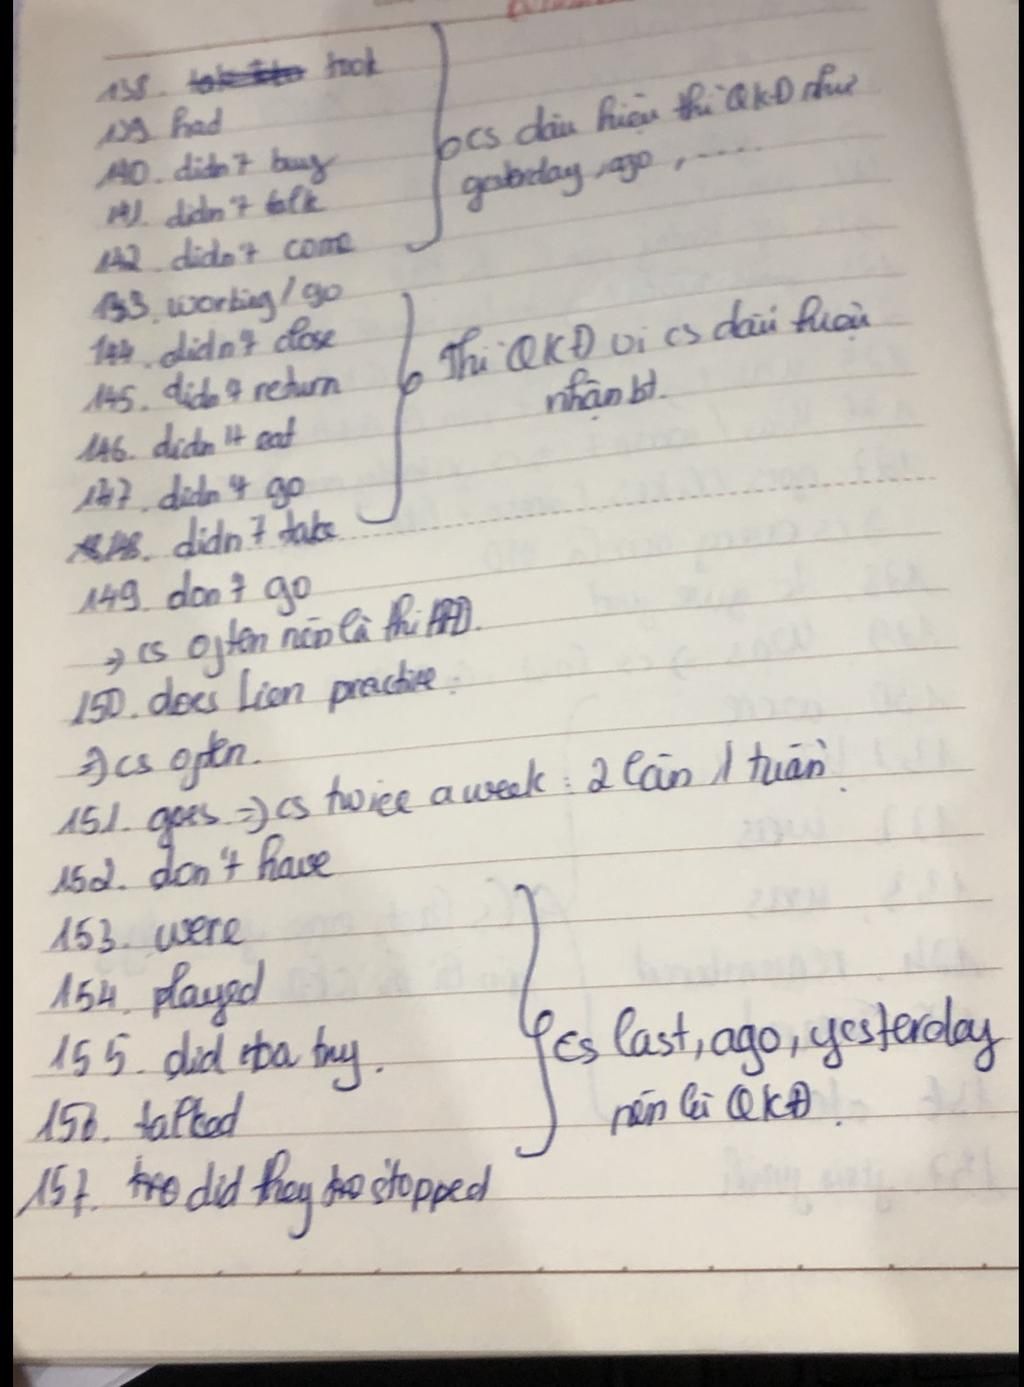 138. took
139 had
140. didn't buy
141. didn't talk
142. didn't come
cs dấu hiệu thì QKĐ như
yesterday, ago, .....
133. working / go
144. didn't close
145. didn't return
146. didn't eat
147. didn't go
148. didn't take
Thì QKĐ vì cs dấu hiệu
nhận bt.
149. don't go
=> cs often nên là thì HTĐ.
150. does Lien practive.
=> cs often.
151. goes => cs twice a week : 2 lần 1 tuần.
152. don't have
153. were
154. played
155. did buy.
156. talked
157. did they stopped
cs last, ago, yesterday
nên là QKĐ.